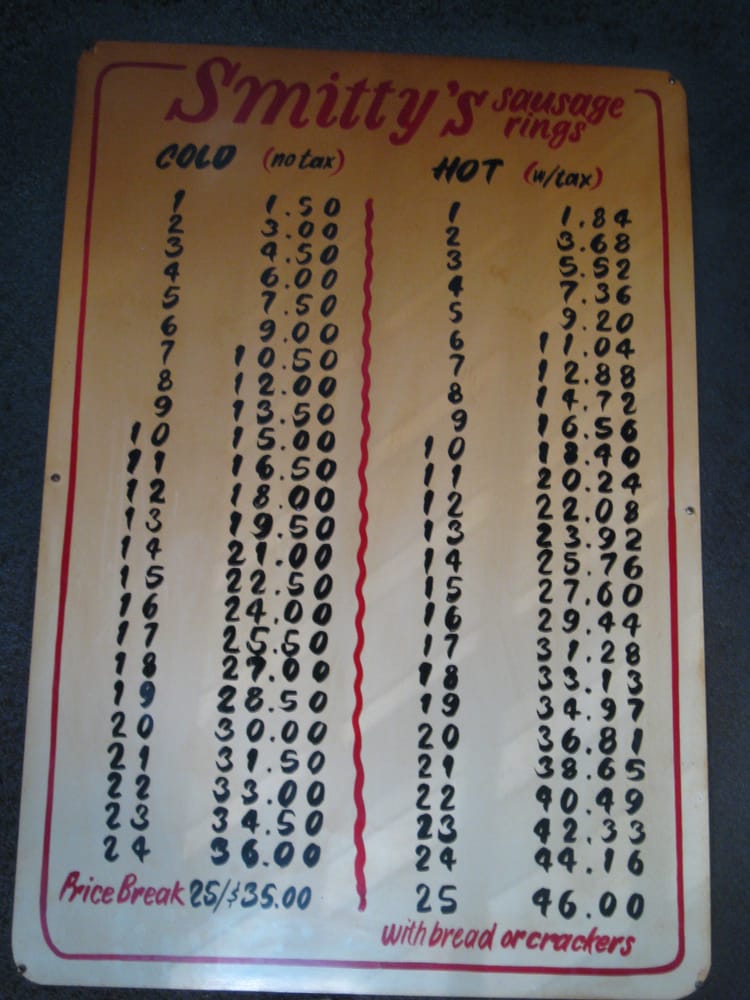 Smitty's sausage rings
COLD (no tax)
1 1.50
2 3.00
3 4.50
4 6.00
5 7.50
6 9.00
7 10.50
8 12.00
9 13.50
10 15.00
11 16.50
12 18.00
13 19.50
14 21.00
15 22.50
16 24.00
17 25.50
18 27.00
19 28.50
20 30.00
21 31.50
22 33.00
23 34.50
24 36.00
Price Break 25/$35.00
HOT (w/tax)
1 1.84
2 3.68
3 5.52
4 7.36
5 9.20
6 11.04
7 12.88
8 14.72
9 16.56
10 18.40
11 20.24
12 22.08
13 23.92
14 25.76
15 27.60
16 29.44
17 31.28
18 33.13
19 34.97
20 36.81
21 38.65
22 40.49
23 42.33
24 44.16
25 46.00
with bread or crackers